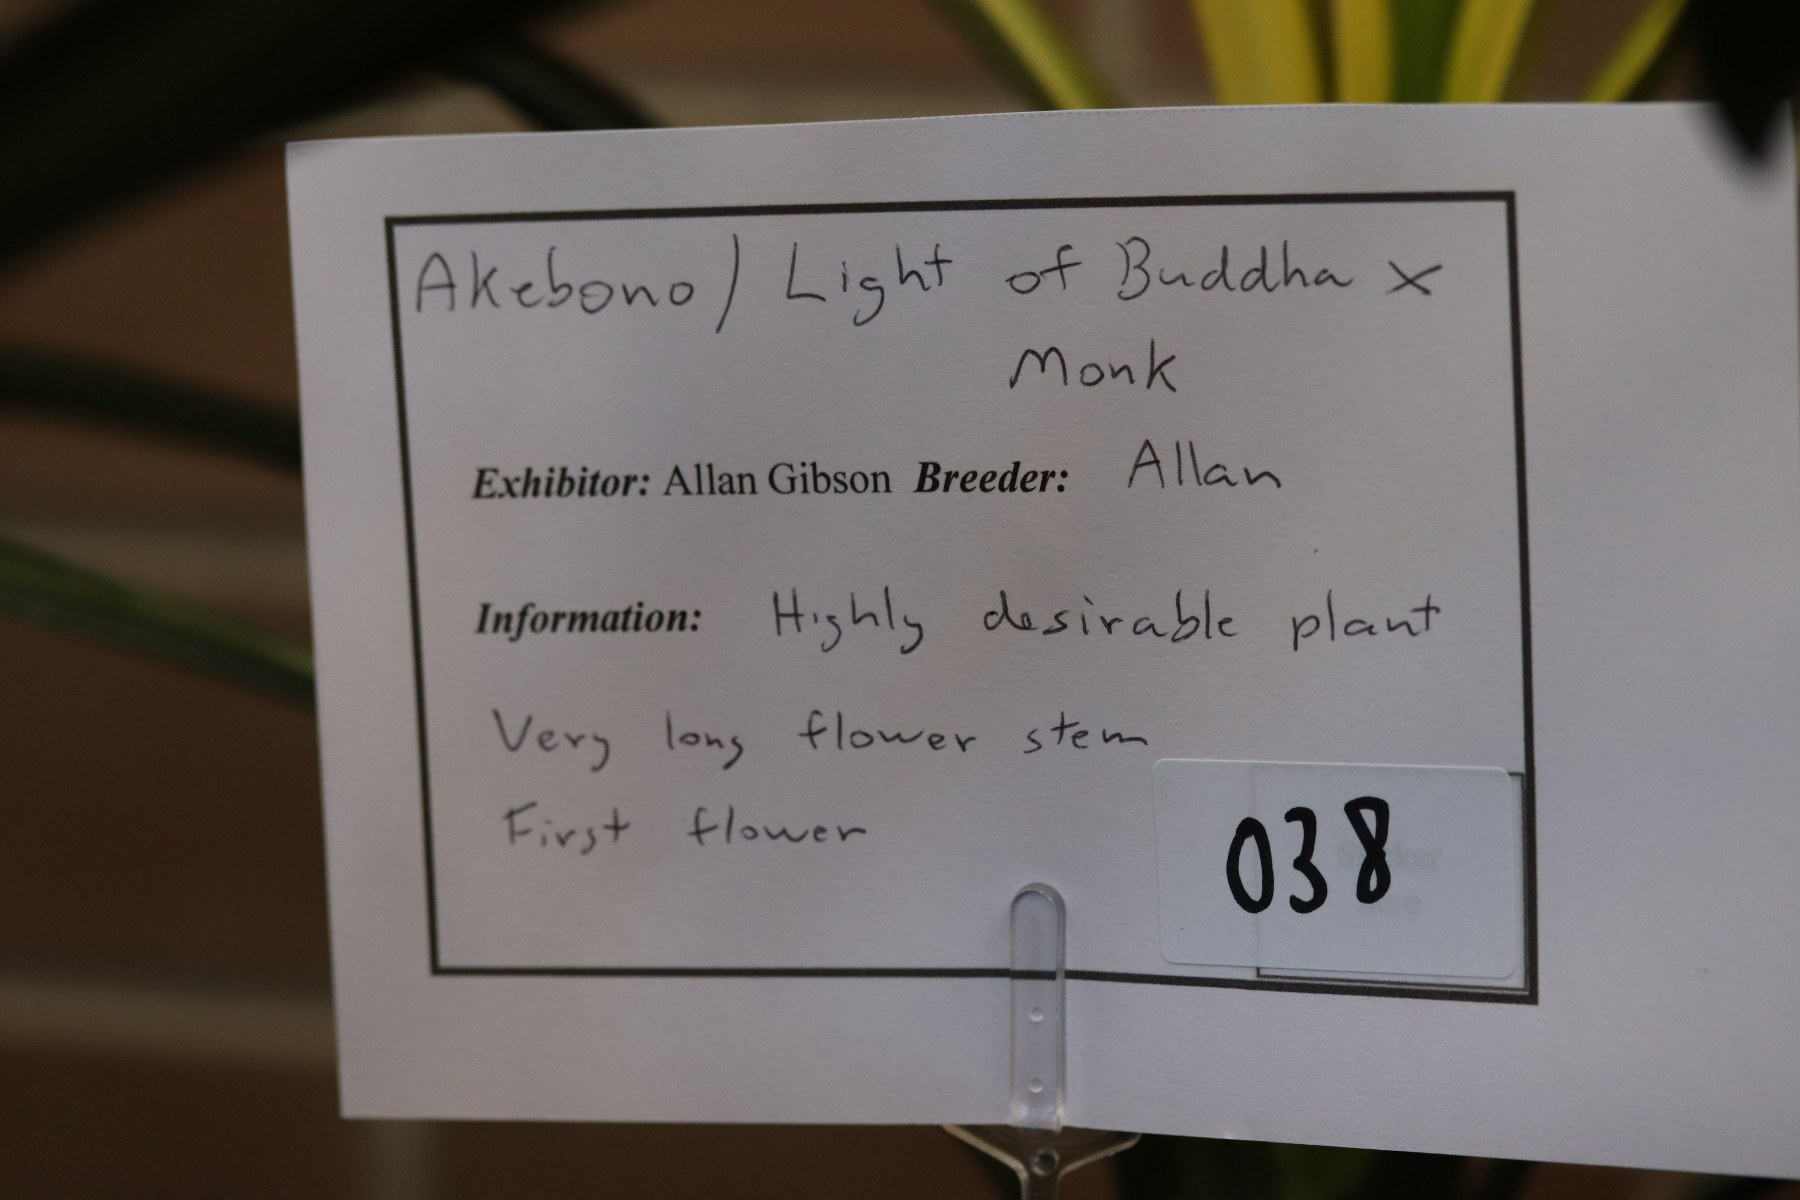 Akebono / Light of Buddha x
Monk
Exhibitor: Allan Gibson Breeder: Allan
Information: Highly desirable plant
Very long flower stem
First flower
038